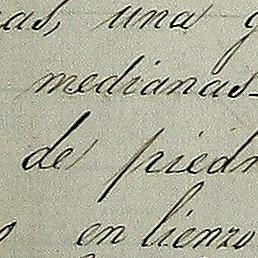 as, una
medianas-
de pied
en lienzo